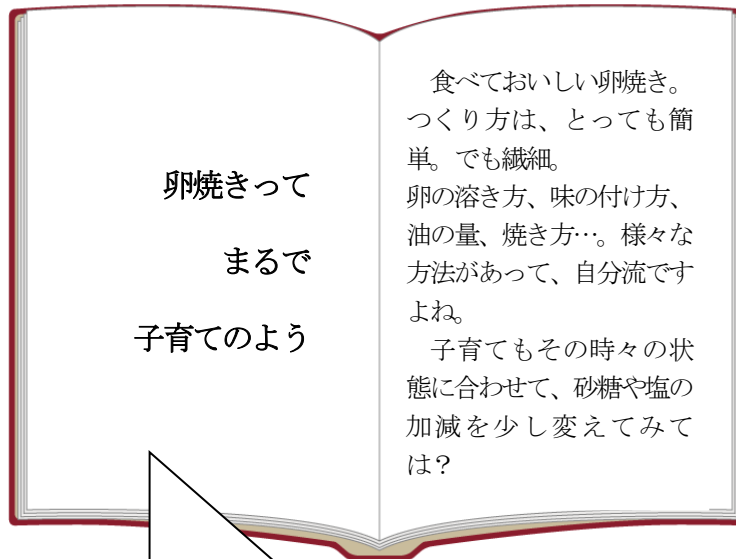 卵焼きって
まるで
子育てのよう
　食べておいしい卵焼き。
つくり方は、とっても簡
単。でも繊細。
卵の溶き方、味の付け方、
油の量、焼き方…。様々な
方法があって、自分流です
よね。
　子育てもその時々の状
態に合わせて、砂糖や塩の
加減を少し変えてみて
は？